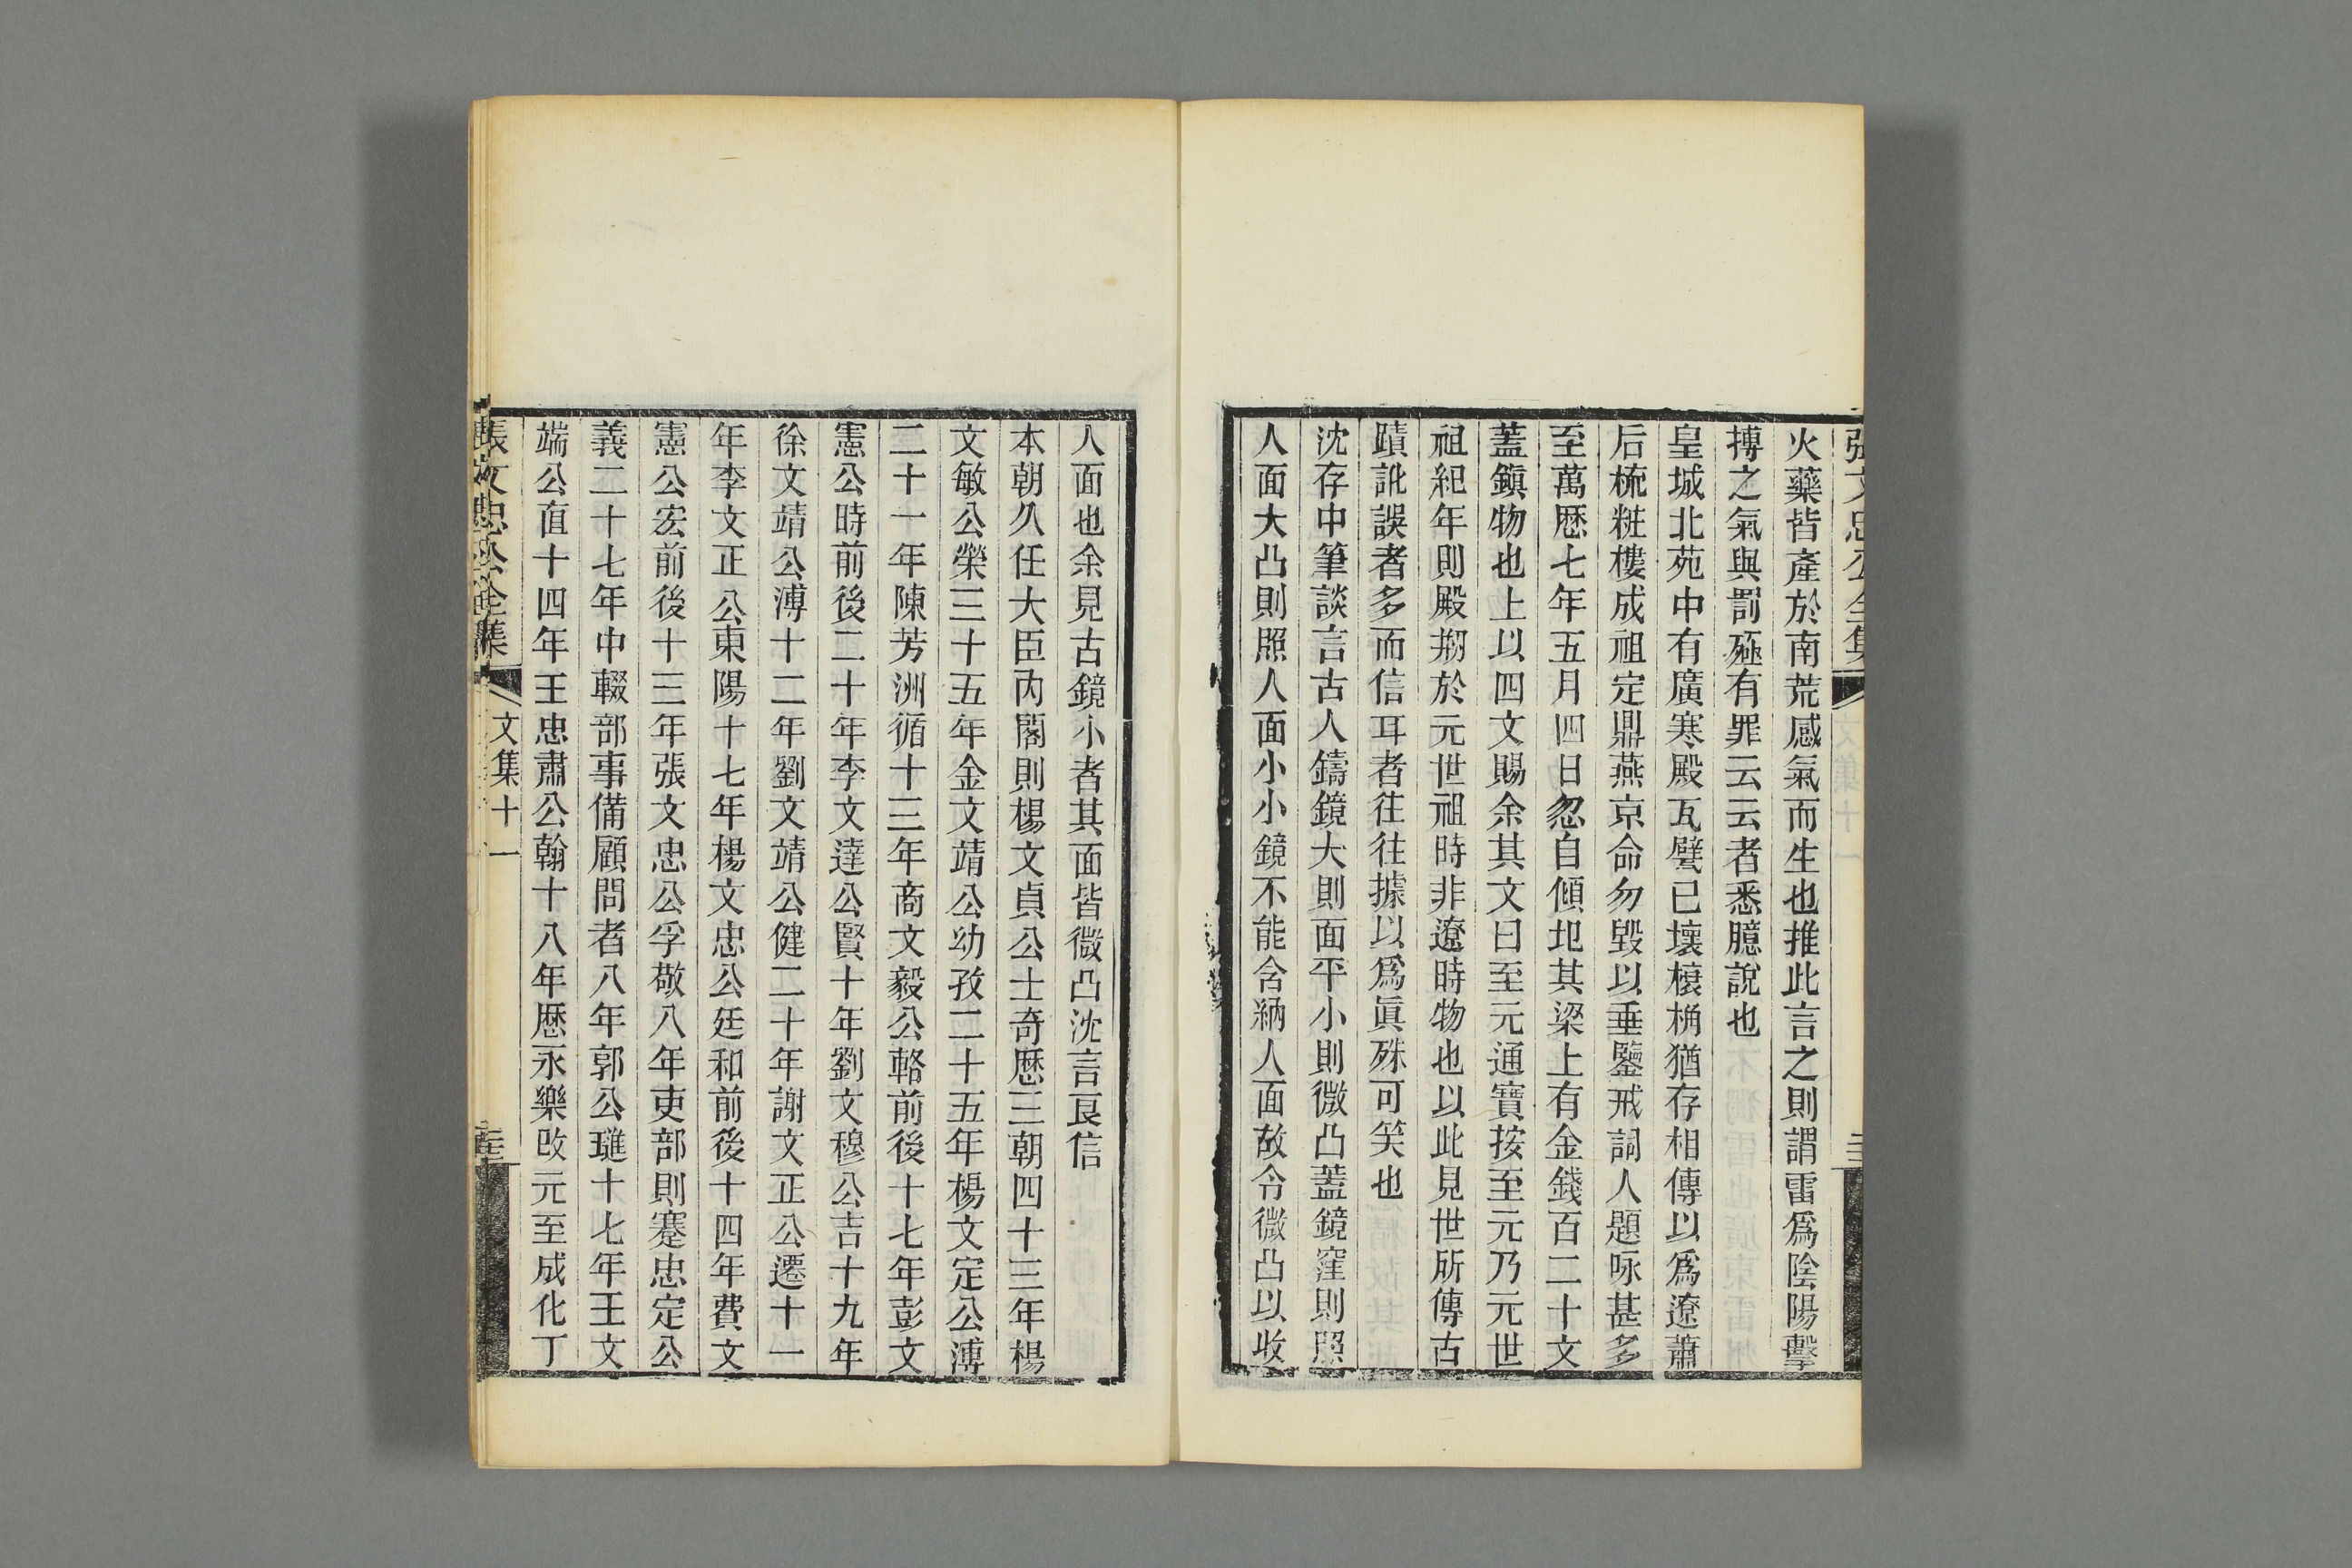 火藥皆產於南荒感氣而生也推此言之則謂雷爲陰陽擊
搏之氣與罰殛有罪云云者悉臆說也
皇城北苑中有廣寒殿瓦甓已壞榱桷猶存相傳以爲遼蕭
后梳粧樓成祖定鼎燕京命勿毀以垂鑒戒詞人題咏甚多
至萬厯七年五月四日忽自傾圯其梁上有金錢百二十文
蓋鎭物也上以四文賜余其文曰至元通寶按至元乃元世
祖紀年則殿剏於元世祖時非遼時物也以此見世所傳古
蹟訛誤者多而信耳者往往據以爲眞殊可笑也
沈存中筆談言古人鑄鏡大則面平小則微凸蓋鏡窪則照
人面大凸則照人面小小鏡不能含納人面故令微凸以收
人面也余見古鏡小者其面皆微凸沈言良信
本朝久任大臣内閣則楊文貞公士奇厯三朝四十三年楊
文敏公榮三十五年金文靖公幼孜二十五年楊文定公溥
二十一年陳芳洲循十三年商文毅公輅前後十七年彭文
憲公時前後二十年李文達公賢十年劉文穆公吉十九年
徐文靖公溥十二年劉文靖公健二十年謝文正公遷十一
年李文正公東陽十七年楊文忠公廷和前後十四年費文
憲公宏前後十三年張文忠公孚敬八年吏部則蹇忠定公
義二十七年中輟部事備顧問者八年郭公璡十七年王文
端公直十四年王忠肅公翱十八年厯永樂改元至成化丁
張文忠公全集
文集十一